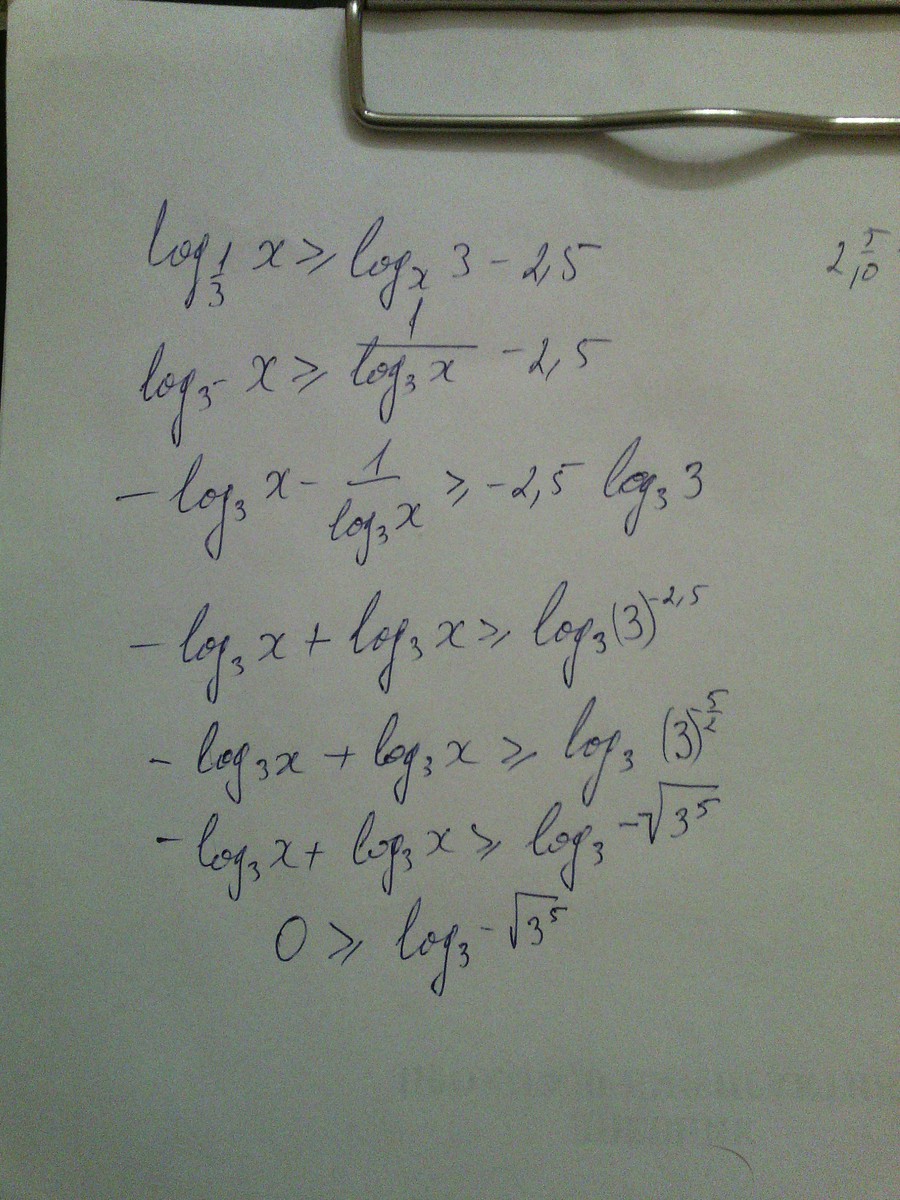 log_{1/3} x ⩾ log_x 3 - 2,5
2,5/10
log_{3^-} x ⩾ 1/(log_3 x) - 2,5
- log_3 x - 1/(log_3 x) ⩾ -2,5 log_3 3
- log_3 x + log_3 x ⩾ log_3 (3)^{-2,5}
- log_3 x + log_3 x ⩾ log_3 (3)^{-5/2}
- log_3 x + log_3 x ⩾ log_3 -√(3^5)
0 ⩾ log_3 -√(3^5)